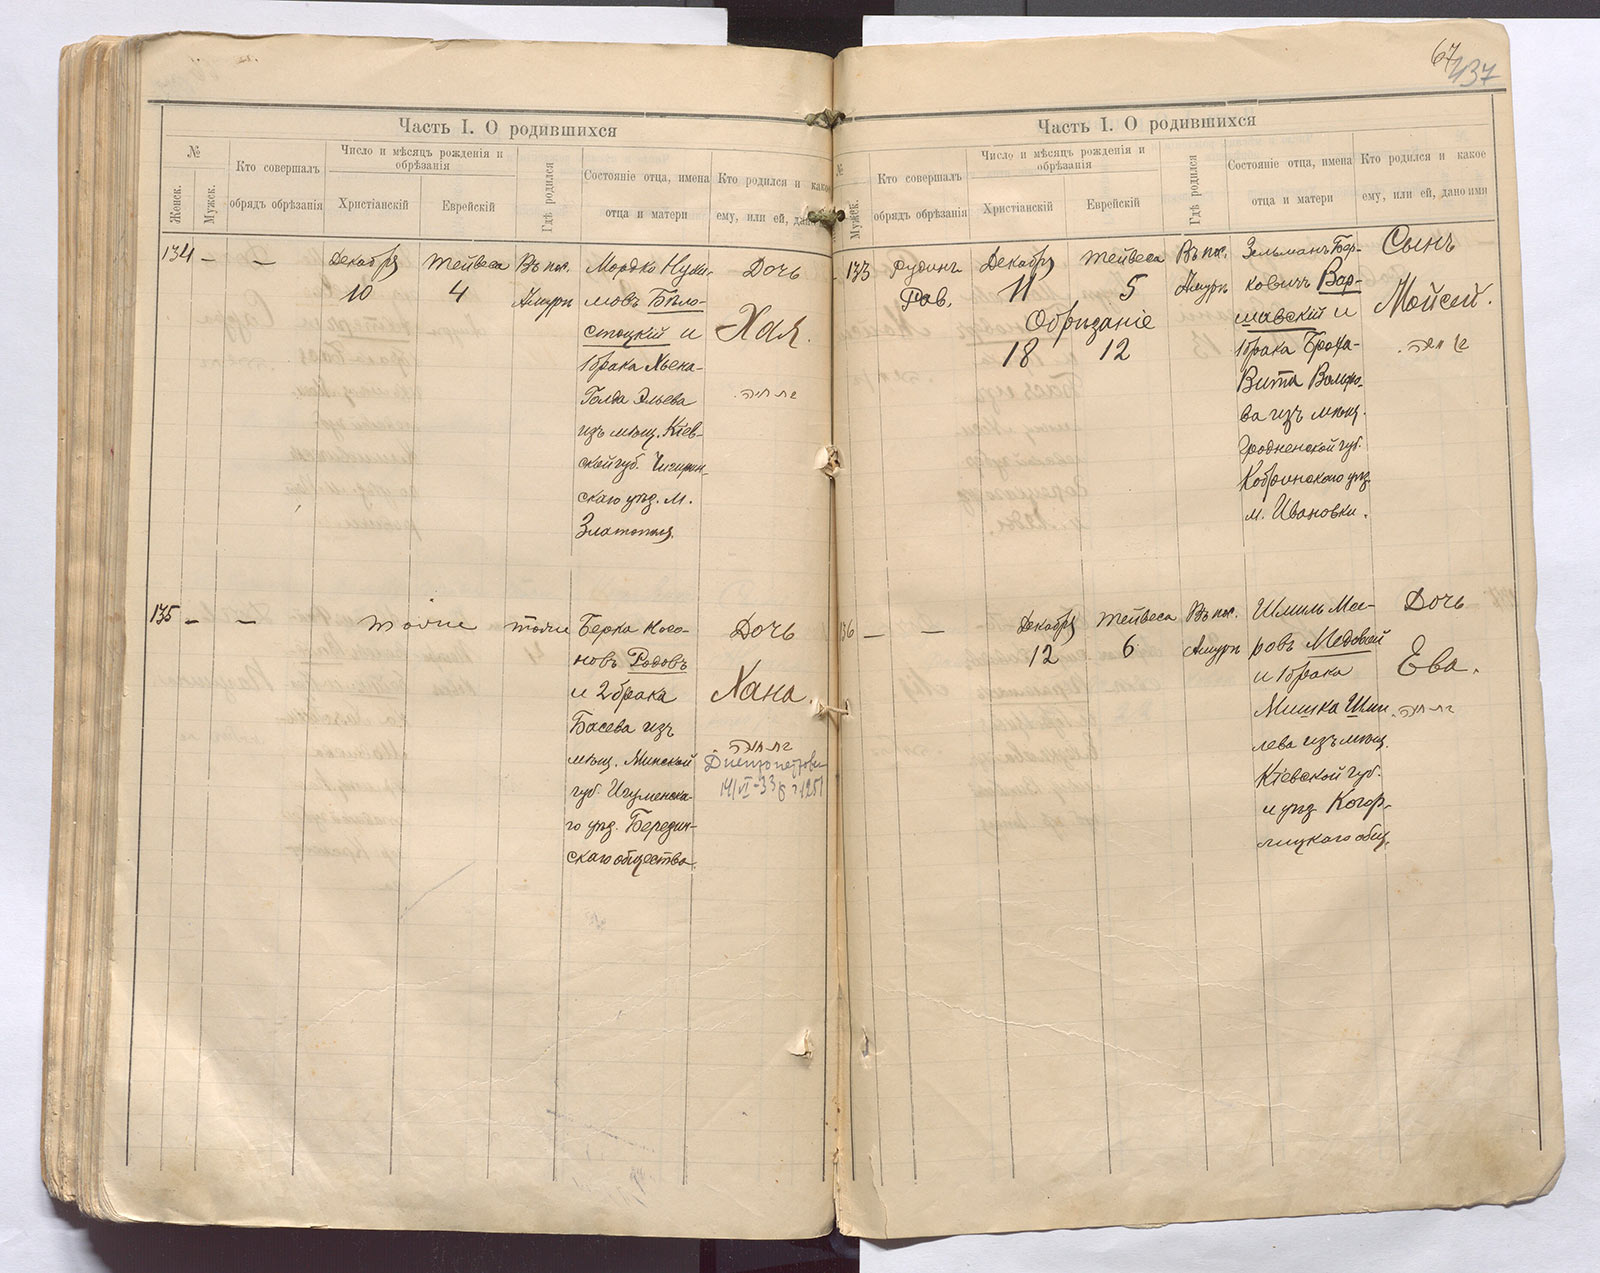 67
437
Часть I. О родившихся
№
Женск.
Мужск.
Кто совершалъ
обрядъ обрѣзанія
Число и мѣсяцъ рожденія и
обрѣзанія
Христіанскій
Еврейскій
Гдѣ родился
Состояніе отца, имена
отца и матери
Кто родился и какое
ему, или ей, дано имя
134 — —
Декабря
10
Тейвеса
4
Въ пос.
Амуръ
Мордко Нухи-
мовъ Бѣло-
стоцкій и
1 брака Хьена-
Голда Эльева
изъ мѣщ. Кіев-
ской губ. Чигирин-
скаго уѣзд. м.
Златополя.
Дочь
Хая.
135 — —
тоже
тоже
Берка Носо-
новъ Родовъ
и 2 брака
Басева изъ
мѣщ. Минской
губ. Игуменска-
го уѣзд. Березин-
скаго общества.
Дочь
Хана.
Днепропетровск
14/VI-33
Часть I. О родившихся
№
Мужск.
Кто совершалъ
обрядъ обрѣзанія
Число и мѣсяцъ рожденія и
обрѣзанія
Христіанскій
Еврейскій
Гдѣ родился
Состояніе отца, имена
отца и матери
Кто родился и какое
ему, или ей, дано имя
133
Рудинъ
Рав.
Декабря
11
Тейвеса
5
Обризаніе
18 12
Въ пос.
Амуръ
Зельманъ Гер-
ковичъ Вар-
шавскій и
1 брака Броха-
Вита Вольфо-
ва изъ мѣщ.
Гродненской губ.
Кобринскаго уѣзд.
м. Ивановки.
Сынъ
Мойсей.
136 — —
Декабря
12
Тейвеса
6
Въ пос.
Амуръ
Шмиль Меє-
ровъ Медовой
и 1 брака
Мишка Шми-
лева изъ мѣщ.
Кіевской губ.
и уѣзд. Кагар-
лицкаго общ.
Дочь
Ева.